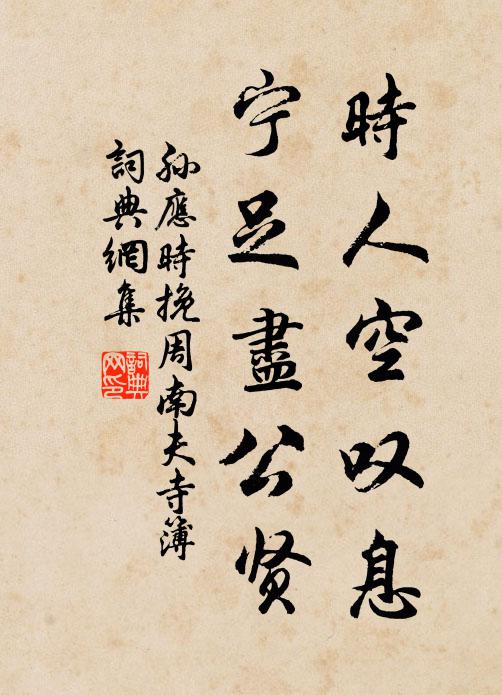 時人空叹息
宁足盡公贤
孙應時挽周南夫寺簿
詞典網集
詞典网印